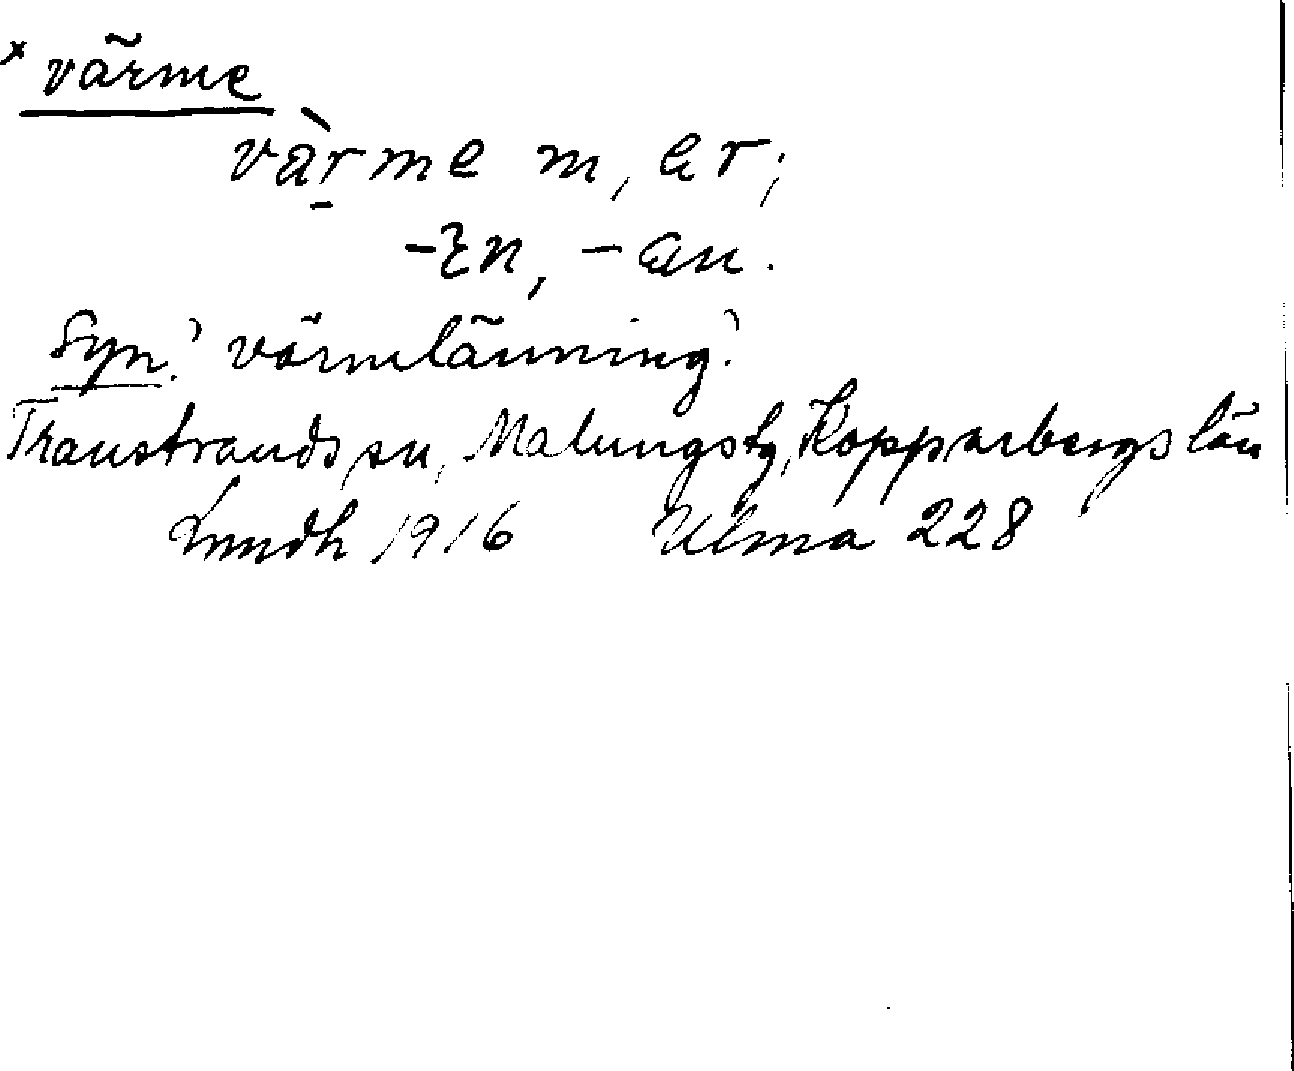 × värme
vàrme m, er;
-en, -an.
Syn.' värmlänning'.
Transtrands sn, Malungs tg, Kopparbergs län
Lundh 1916 Ulma 228